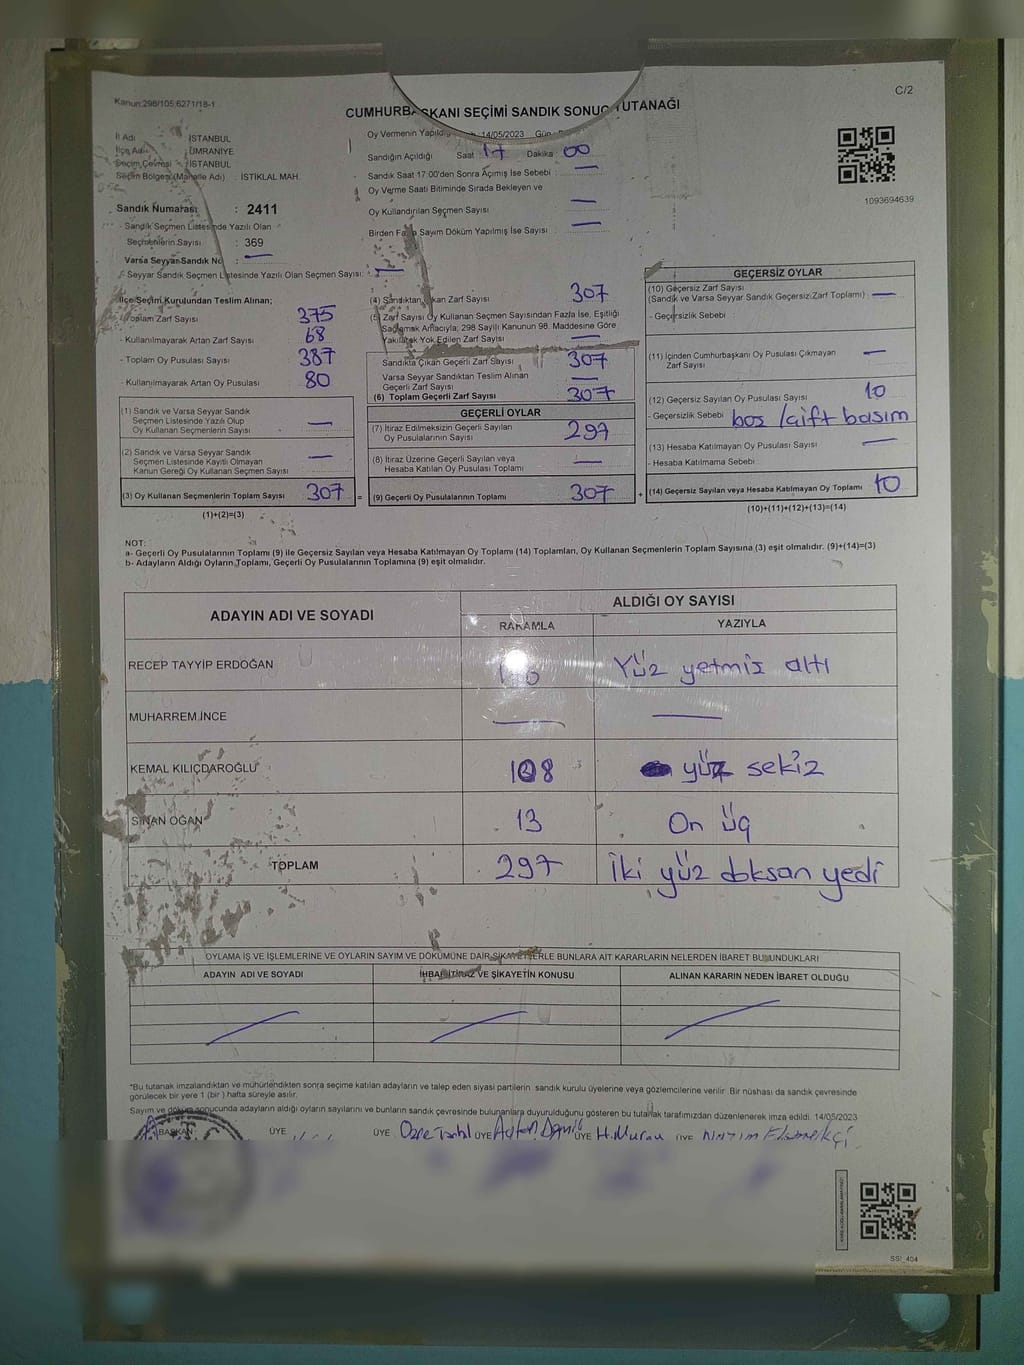 Kanun:298/105;6271/18-1
C/2
CUMHURBAŞKANI SEÇİMİ SANDIK SONUÇ TUTANAĞI
İl Adı : İSTANBUL
İlçe Adı : ÜMRANİYE
Seçim Çevresi : İSTANBUL
Seçim Bölgesi (Mahalle Adı) : İSTİKLAL MAH.
Sandık Numarası : 2411
Sandık Seçmen Listesinde Yazılı Olan
Seçmenlerin Sayısı : 369
Varsa Seyyar Sandık No :
Seyyar Sandık Seçmen Listesinde Yazılı Olan Seçmen Sayısı:
Oy Vermenin Yapıldığı 14/05/2023 Gün
Sandığın Açıldığı Saat : 17 Dakika : 00
Sandık Saat 17:00'den Sonra Açımış İse Sebebi :
Oy Verme Saati Bitiminde Sırada Bekleyen ve
Oy Kullandırılan Seçmen Sayısı :
Birden Fazla Sayım Döküm Yapılmış İse Sayısı :
1093694639
İlçe Seçim Kurulundan Teslim Alınan;
Toplam Zarf Sayısı : 375
- Kullanılmayarak Artan Zarf Sayısı : 68
- Toplam Oy Pusulası Sayısı : 387
- Kullanılmayarak Artan Oy Pusulası : 80
(1) Sandık ve Varsa Seyyar Sandık
Seçmen Listesinde Yazılı Olup
Oy Kullanan Seçmenlerin Sayısı :
(2) Sandık ve Varsa Seyyar Sandık
Seçmen Listesinde Kayıtlı Olmayan
Kanun Gereği Oy Kullanan Seçmen Sayısı
(3) Oy Kullanan Seçmenlerin Toplam Sayısı 307 =
(1)+(2)=(3)
(4) Sandıktan Çıkan Zarf Sayısı 307
(5) Zarf Sayısı Oy Kullanan Seçmen Sayısından Fazla İse, Eşitliği
Sağlamak Amacıyla; 298 Sayılı Kanunun 98. Maddesine Göre
Yakılarak Yok Edilen Zarf Sayısı
Sandıkta Çıkan Geçerli Zarf Sayısı 307
Varsa Seyyar Sandıktan Teslim Alınan
Geçerli Zarf Sayısı
(6) Toplam Geçerli Zarf Sayısı 307
GEÇERLİ OYLAR
(7) İtiraz Edilmeksizin Geçerli Sayılan
Oy Pusulalarının Sayısı : 297
(8) İtiraz Üzerine Geçerli Sayılan veya
Hesaba Katılan Oy Pusulası Toplamı
(9) Geçerli Oy Pusulalarının Toplamı 307 +
GEÇERSİZ OYLAR
(10) Geçersiz Zarf Sayısı
(Sandık ve Varsa Seyyar Sandık Geçersiz Zarf Toplamı) :
- Geçersizlik Sebebi :
(11) İçinden Cumhurbaşkanı Oy Pusulası Çıkmayan
Zarf Sayısı
(12) Geçersiz Sayılan Oy Pusulası Sayısı : 10
- Geçersizlik Sebebi : boş / çift basım
(13) Hesaba Katılmayan Oy Pusulası Sayısı :
- Hesaba Katılmama Sebebi :
(14) Geçersiz Sayılan veya Hesaba Katılmayan Oy Toplamı 10
(10)+(11)+(12)+(13)=(14)
NOT:
a- Geçerli Oy Pusulalarının Toplamı (9) ile Geçersiz Sayılan veya Hesaba Katılmayan Oy Toplamı (14) Toplamları, Oy Kullanan Seçmenlerin Toplam Sayısına (3) eşit olmalıdır. (9)+(14)=(3)
b- Adayların Aldığı Oyların Toplamı, Geçerli Oy Pusulalarının Toplamına (9) eşit olmalıdır.
ADAYIN ADI VE SOYADI ALDIĞI OY SAYISI
RAKAMLA YAZIYLA
RECEP TAYYİP ERDOĞAN Yüz yetmiş altı
MUHARREM İNCE
KEMAL KILIÇDAROĞLU 108 yüz sekiz
SİNAN OĞAN 13 On üç
TOPLAM 297 İki yüz doksan yedi
OYLAMA İŞ VE İŞLEMLERINE VE OYLARIN SAYIM VE DÖKÜMÜNE DAİR ŞİKAYETLERLE BUNLARA AİT KARARLARIN NELERDEN İBARET BULUNDUKLARI
ADAYIN ADI VE SOYADI İHBAR İTİRAZ VE ŞİKAYETİN KONUSU ALINAN KARARIN NEDEN İBARET OLDUĞU
*Bu tutanak imzalandıktan ve mühürlendikten sonra seçime katılan adayların ve talep eden siyasi partilerin sandık kurulu üyelerine veya gözlemcilerine verilir. Bir nüshası da sandık çevresinde
görülecek bir yere 1 (bir ) hafta süreyle asılır.
Sayım ve döküm sonucunda adayların aldığı oyların sayılarını ve bunların sandık çevresinde bulunanlara duyurulduğunu gösteren bu tutanak tarafımızdan düzenlenerek imza edildi. 14/05/2023
BAŞKAN ÜYE ÜYE ÜYE ÜYE H.Murau ÜYE
SSİ_404